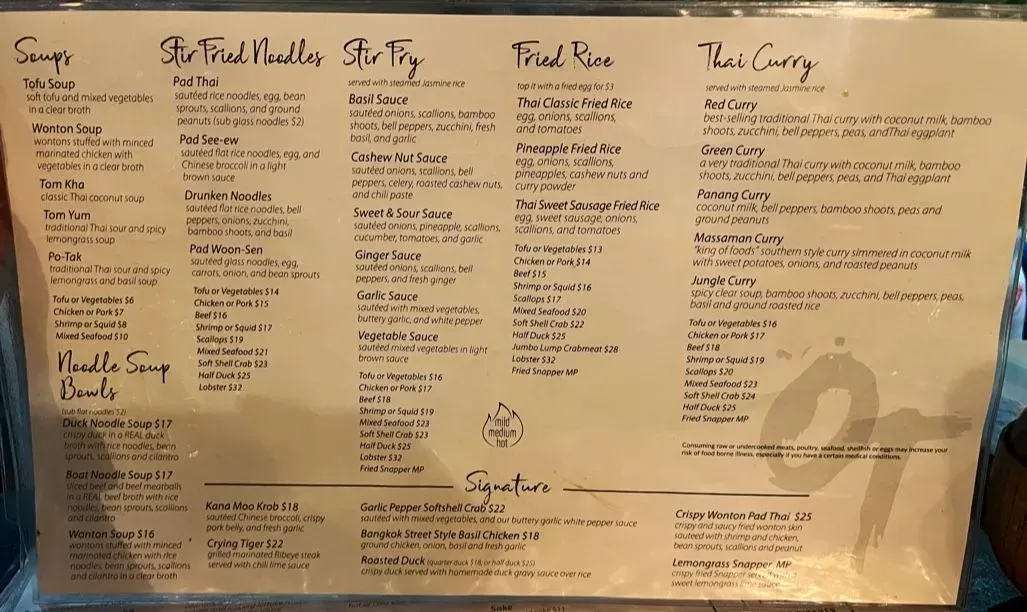 Soups
Tofu Soup
soft tofu and mixed vegetables
in a clear broth
Wonton Soup
wontons stuffed with minced
marinated chicken with
vegetables in a clear broth
Tom Kha
classic Thai coconut soup
Tom Yum
traditional Thai sour and spicy
lemongrass soup
Po-Tak
traditional Thai sour and spicy
lemongrass and basil soup
Tofu or Vegetables $6
Chicken or Pork $7
Shrimp or Squid $8
Mixed Seafood $10
Noodle Soup
Bowls
(sub flat noodles $2)
Duck Noodle Soup $17
crispy duck in a REAL duck
broth with rice noodles, bean
sprouts, scallions and cilantro
Boat Noodle Soup $17
sliced beef and beef meatballs
in a REAL beef broth with rice
noodles, bean sprouts, scallions
and cilantro
Wonton Soup $16
wontons stuffed with minced
marinated chicken with rice
noodles, bean sprouts, scallions
and cilantro in a clear broth
Stir Fried Noodles
Pad Thai
sautéed rice noodles, egg, bean
sprouts, scallions, and ground
peanuts (sub glass noodles $2)
Pad See-ew
sautéed flat rice noodles, egg, and
Chinese broccoli in a light
brown sauce
Drunken Noodles
sautéed flat rice noodles, bell
peppers, onions, zucchini,
bamboo shoots, and basil
Pad Woon-Sen
sautéed glass noodles, egg,
carrots, onion, and bean sprouts
Tofu or Vegetables $14
Chicken or Pork $15
Beef $16
Shrimp or Squid $17
Scallops $19
Mixed Seafood $21
Soft Shell Crab $23
Half Duck $25
Lobster $32
Stir Fry
served with steamed Jasmine rice
Basil Sauce
sautéed onions, scallions, bamboo
shoots, bell peppers, zucchini, fresh
basil, and garlic
Cashew Nut Sauce
sautéed onions, scallions, bell
peppers, celery, roasted cashew nuts,
and chili paste
Sweet & Sour Sauce
sautéed onions, pineapple, scallions,
cucumber, tomatoes, and garlic
Ginger Sauce
sautéed onions, scallions, bell
peppers, and fresh ginger
Garlic Sauce
sautéed with mixed vegetables,
buttery garlic, and white pepper
Vegetable Sauce
sautéed mixed vegetables in light
brown sauce
Tofu or Vegetables $16
Chicken or Pork $17
Beef $18
Shrimp or Squid $19
Mixed Seafood $23
Soft Shell Crab $23
Half Duck $25
Lobster $32
Fried Snapper MP
Fried Rice
top it with a fried egg for $3
Thai Classic Fried Rice
egg, onions, scallions,
and tomatoes
Pineapple Fried Rice
egg, onions, scallions,
pineapples, cashew nuts and
curry powder
Thai Sweet Sausage Fried Rice
egg, sweet sausage, onions,
scallions, and tomatoes
Tofu or Vegetables $13
Chicken or Pork $14
Beef $15
Shrimp or Squid $16
Scallops $17
Mixed Seafood $20
Soft Shell Crab $22
Half Duck $25
Jumbo Lump Crabmeat $28
Lobster $32
Fried Snapper MP
mild
medium
hot
Thai Curry
served with steamed Jasmine rice
Red Curry
best-selling traditional Thai curry with coconut milk, bamboo
shoots, zucchini, bell peppers, peas, andThai eggplant
Green Curry
a very traditional Thai curry with coconut milk, bamboo
shoots, zucchini, bell peppers, peas, and Thai eggplant
Panang Curry
coconut milk, bell peppers, bamboo shoots, peas and
ground peanuts
Massaman Curry
"king of foods" southern style curry simmered in coconut milk
with sweet potatoes, onions, and roasted peanuts
Jungle Curry
spicy clear soup, bamboo shoots, zucchini, bell peppers, peas,
basil and ground roasted rice
Tofu or Vegetables $16
Chicken or Pork $17
Beef $18
Shrimp or Squid $19
Scallops $20
Mixed Seafood $23
Soft Shell Crab $24
Half Duck $25
Fried Snapper MP
Consuming raw or undercooked meats, poultry, seafood, shellfish or eggs may increase your
risk of food borne illness, especially if you have a certain medical conditions.
Signature
Kana Moo Krob $18
sautéed Chinese broccoli, crispy
pork belly, and fresh garlic
Crying Tiger $22
grilled marinated Ribeye steak
served with chili lime sauce
Garlic Pepper Softshell Crab $22
sautéed with mixed vegetables, and our buttery garlic white pepper sauce
Bangkok Street Style Basil Chicken $18
ground chicken, onion, basil and fresh garlic
Roasted Duck (quarter duck $18, or half duck $25)
crispy duck served with homemade duck gravy sauce over rice
Crispy Wonton Pad Thai $25
crispy and saucy fried wonton skin
sauteed with shrimp and chicken,
bean sprouts, scallions and peanut
Lemongrass Snapper MP
crispy fried Snapper served with
sweet lemongrass lime sauce
Sake